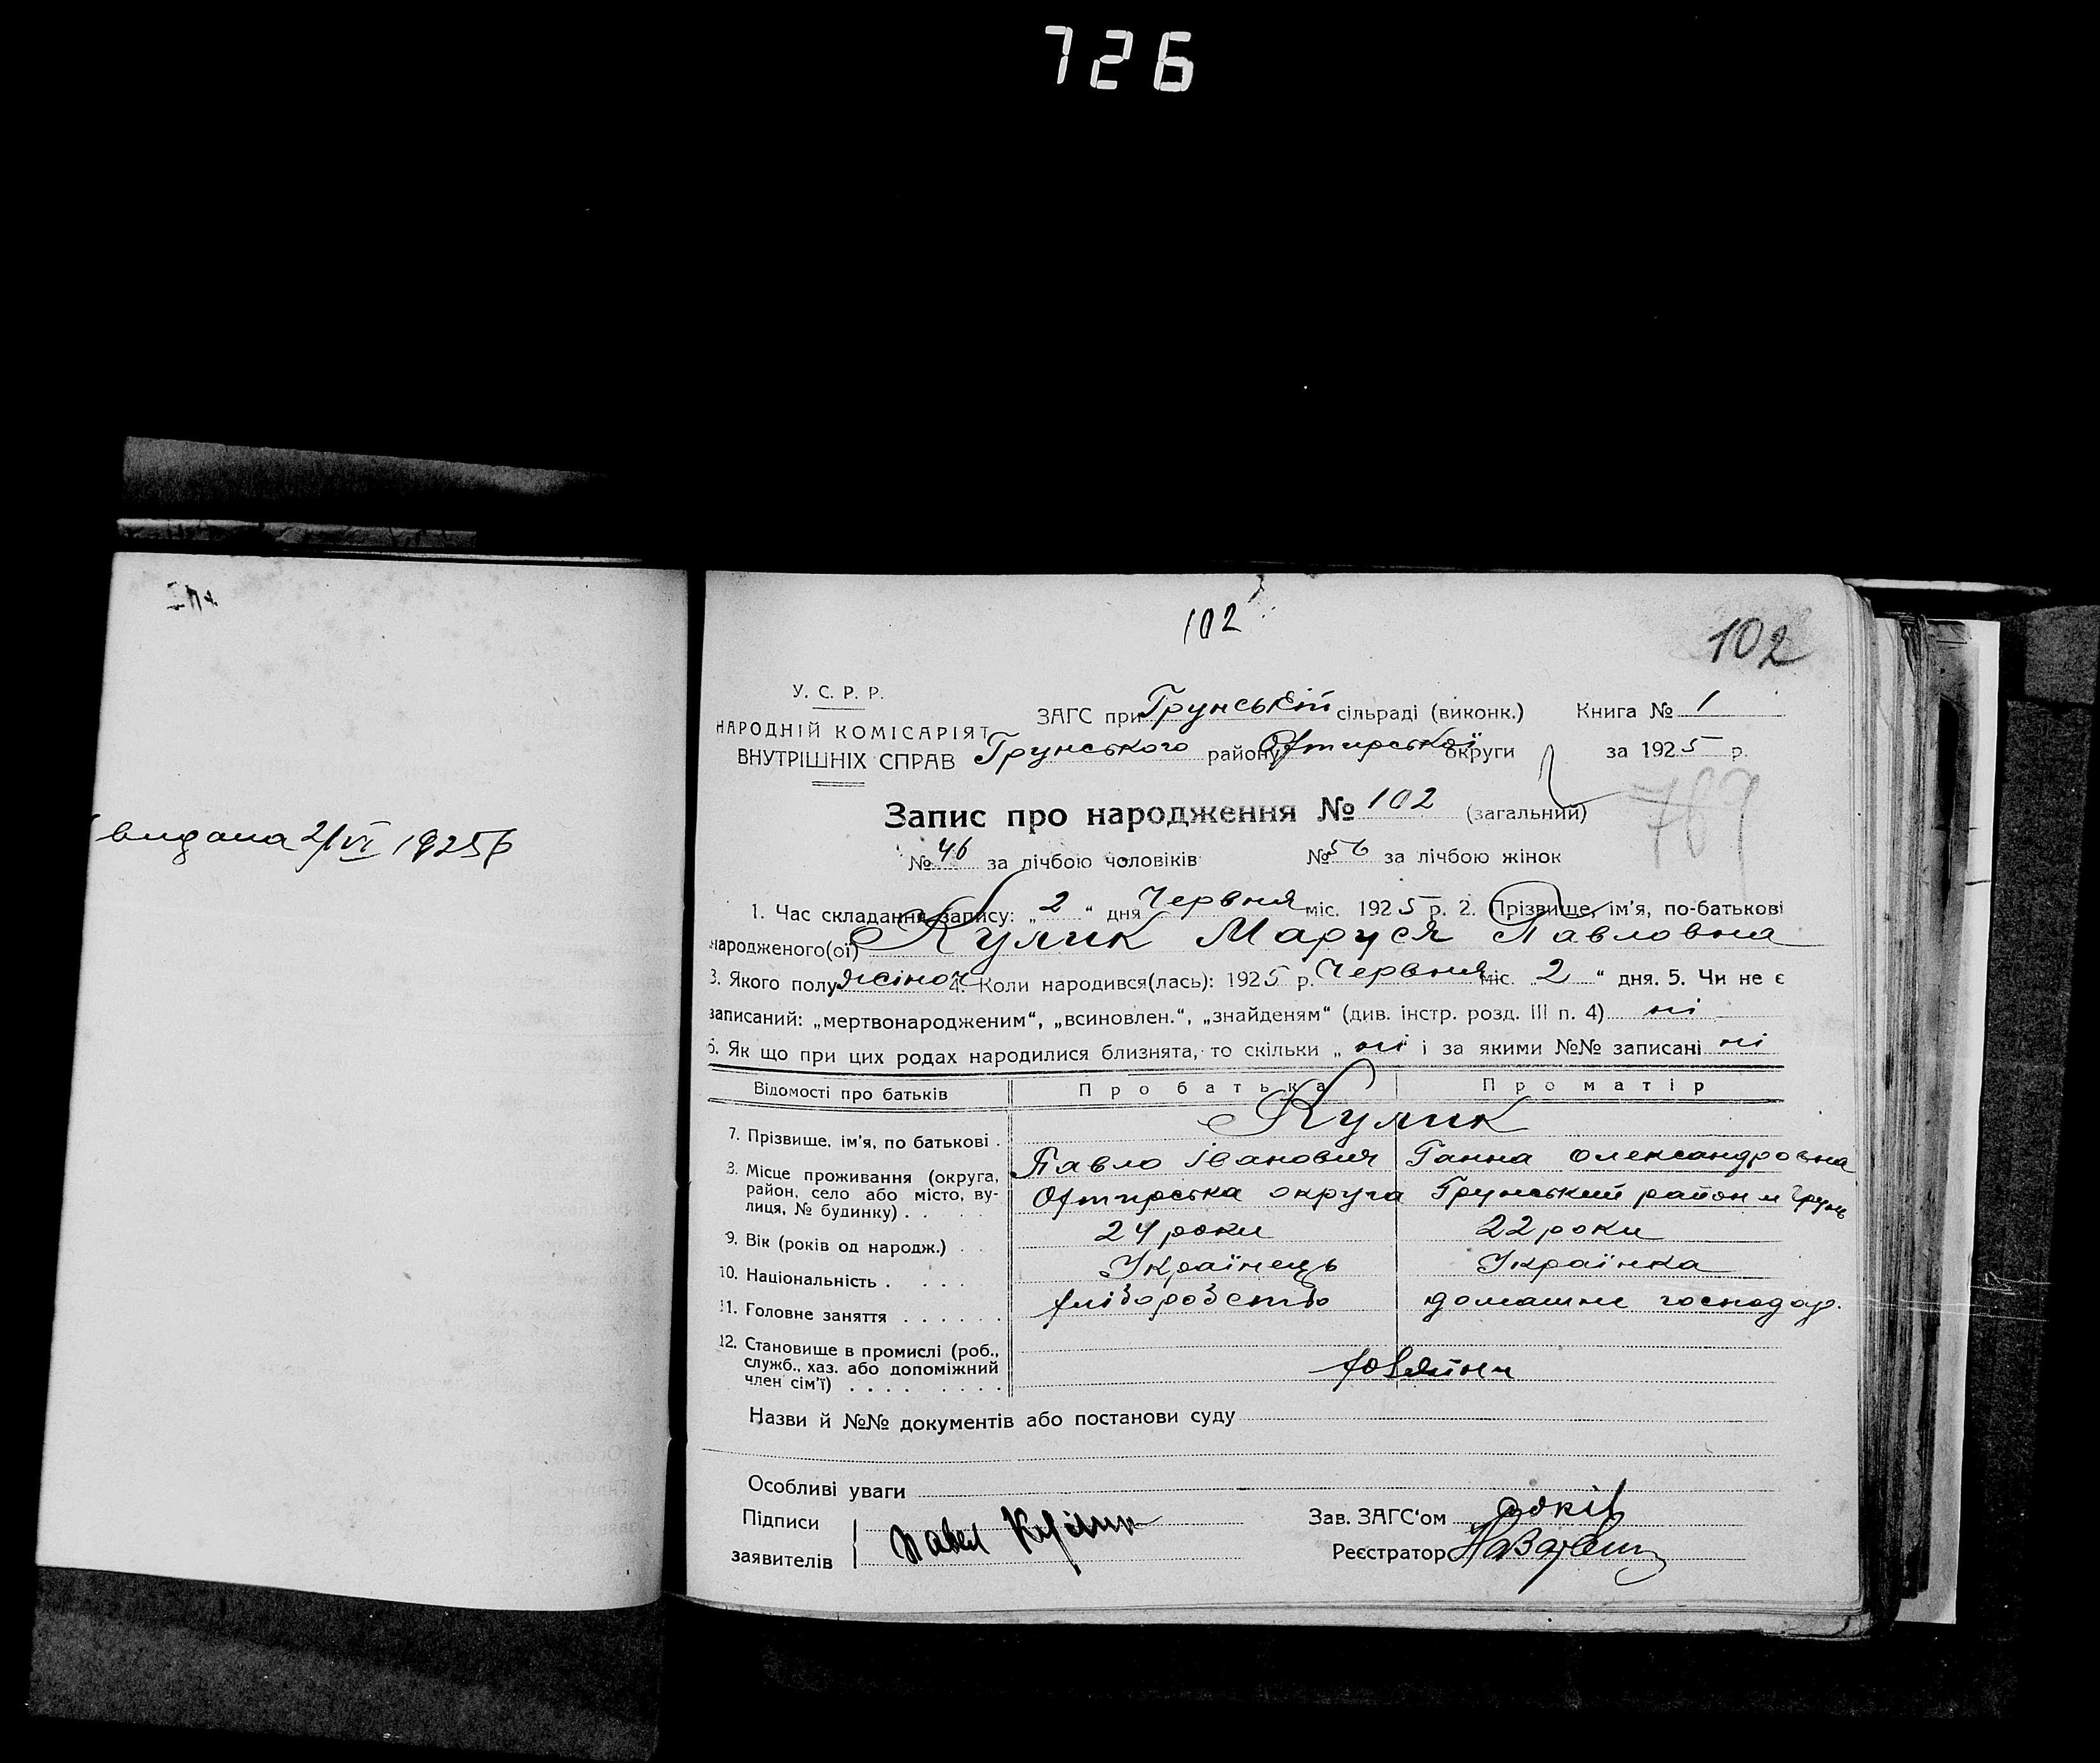 726
102
102
У. С. Р. Р.
НАРОДНІЙ КОМІСАРІЯТ
ВНУТРІШНІХ СПРАВ
ЗАГС при Грунській сільраді (виконк.) Книга № 1
Грунського району Охтирської округи за 1925 р.
Запис про народження № 102 (загальний)
789
№ 46 за лічбою чоловіків № 56 за лічбою жінок
видана 2/VI 1925 р
1. Час складання запису: „2“ дня Червня міс. 1925 р. 2. Прізвище, ім'я, по-батькові
народженого(ої) Кулик Маруся Павловна
3. Якого полу жіноч 4. Коли народився(лась): 1925 р. Червня міс. 2 “ дня. 5. Чи не є
записаний: „мертвонародженим“, „всиновлен.“, „знайденям“ (див. інстр. розд. III п. 4) ні
6. Як що при цих родах народилися близнята, то скільки „ ні “ і за якими №№ записані ні
Відомості про батьків Про батька Про матір
Кулик
7. Прізвище, ім'я, по батькові . Павло Іванович Ганна Олександровна
8. Місце проживання (округа,
район, село або місто, ву-
лиця, № будинку) . . . . Охтирська округа Грунський район м Грунь
9. Вік (років од народж.) . . 24 роки 22 роки
10. Національність . . . . Українець Українка
11. Головне заняття . . . . . . хліборобство домашне господар.
12. Становище в промислі (роб.,
служб., хаз. або допоміжний
член сім'ї) . . . . . . . . хозяїни
Назви й №№ документів або постанови суду
Особливі уваги
Підписи
заявителів Павел Кулик
Зав. ЗАГС'ом
Реєстратор